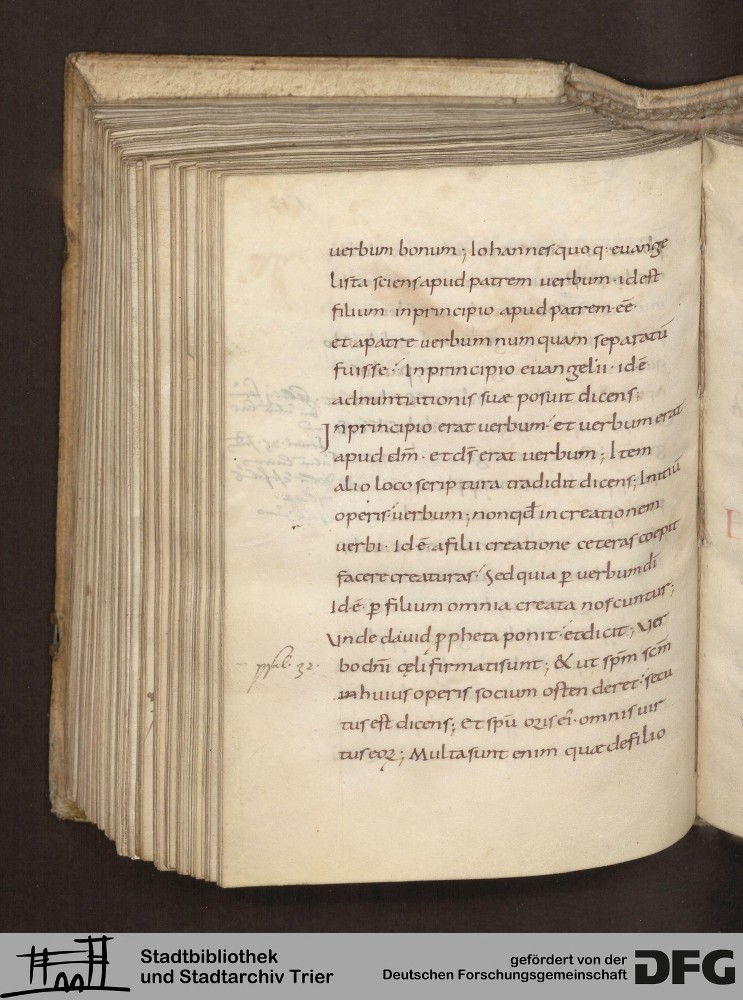 uerbum bonum; Iohannes quoq· euange
lista sciens apud patrem uerbum· id est
filium in principio apud patrem· eē·
et a patre uerbum numquam separatū
fuisse· In principio euangelii· id ē
adnuntiationis suæ posuit dicens;
Inprincipio erat uerbum· et uerbum erat
apud dm̄· et ds̄ erat uerbum; Item
alio loco scriptura tradidit dicens; Initiū
operis· uerbum; non qđ in creationem
uerbi· Id ē· a filii creatione ceteras coepit
facere creaturas· Sed quia ꝑ uerbum dī
Id ē· ꝑ filium omnia creata noscuntur;
Vnde dauid ꝓpheta ponit· et dicit; Ver
bo dnī cęli firmati sunt; & ut spm̄ scm̄
in huius operis socium ostenderet· secu
tus est dicens; Et spū oris ei· omnis uir
tus eoꝝ; Multa sunt enim quæ de filio
psal· 32·
Stadtbibliothek
und Stadtarchiv Trier
gefördert von der
Deutschen Forschungsgemeinschaft
DFG